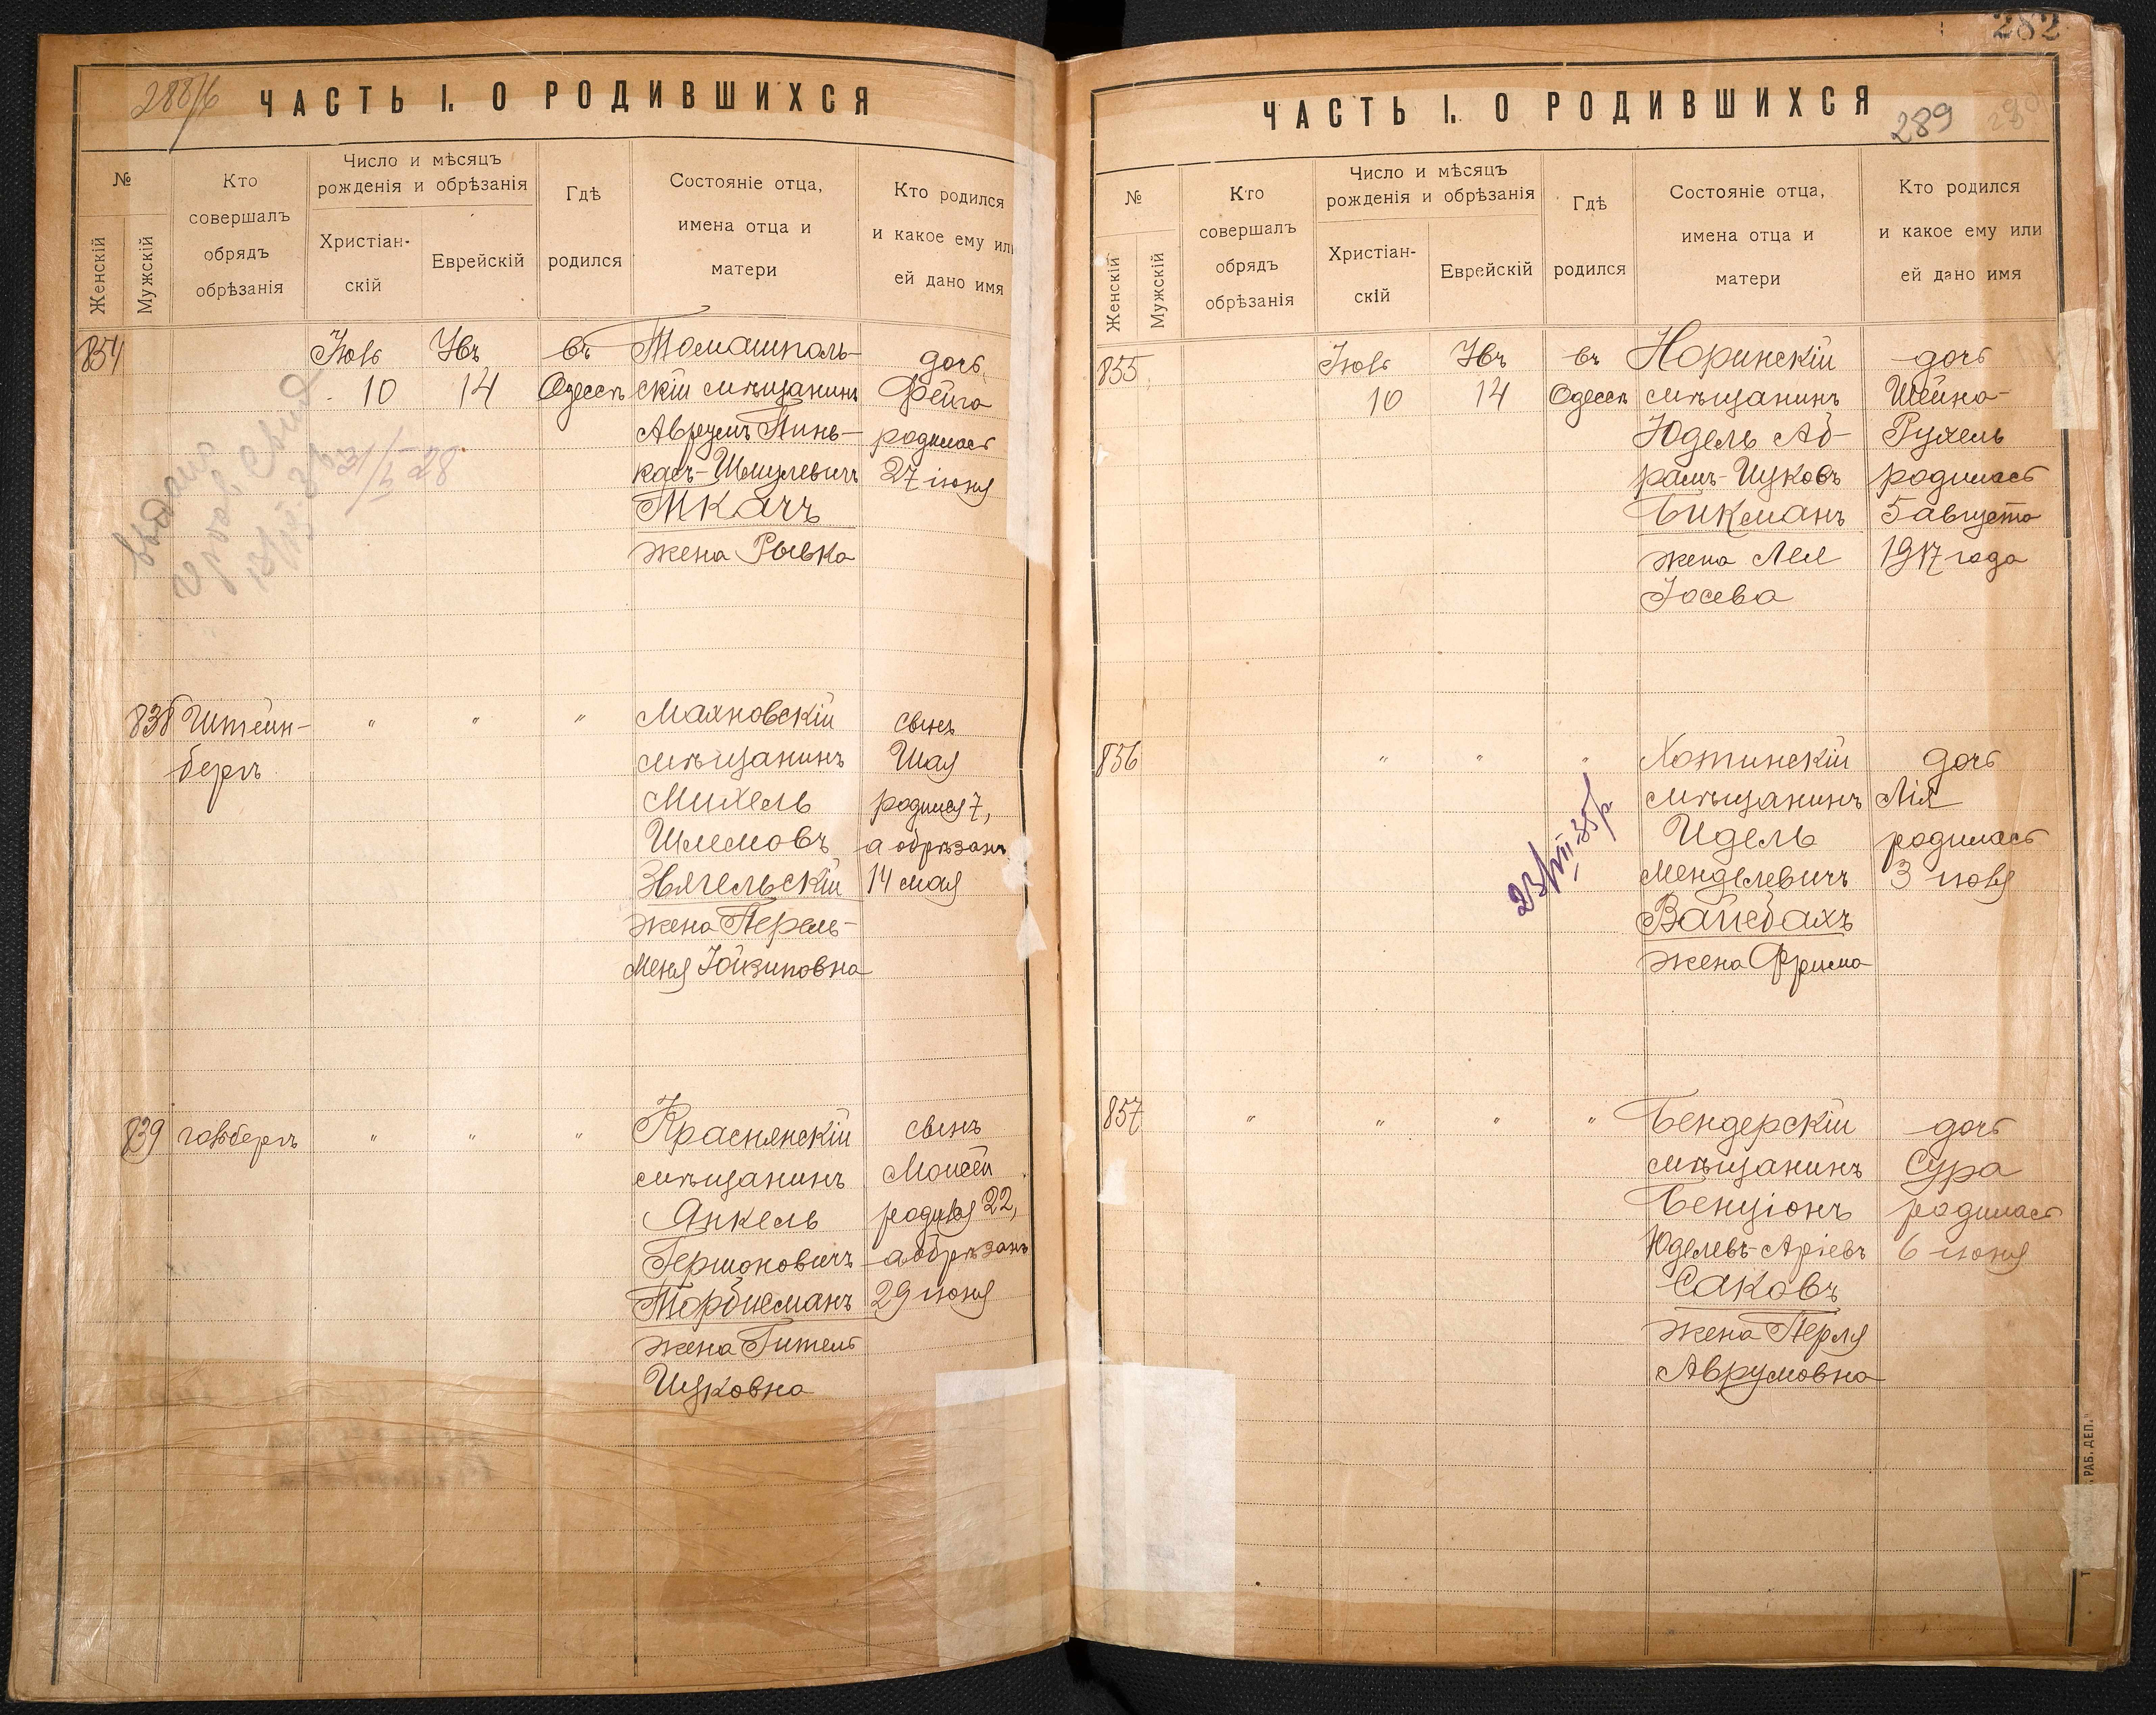 288/б
ЧАСТЬ I. О РОДИВШИХСЯ
№
Женскій
Мужскій
Кто
совершалъ
обрядъ
обрѣзанія
Число и мѣсяцъ
рожденія и обрѣзанія
Христіан-
скій
Еврейскій
Гдѣ
родился
Состояніе отца,
имена отца и
матери
Кто родился
и какое ему или
ей дано имя
854
Іюль
10
Увъ
14
въ
Одессѣ
Томашполь-
скій мѣщанинъ
Аврумъ Пинь-
касъ-Шмулевичъ
Ткачъ
жена Рывка
дочь
Фейга
родилась
27 іюня
838
Штейн-
бергъ
"
"
"
Махновскій
мѣщанинъ
Михель
Шлемовъ
Звягельскій
жена Перель-
Меня Іойзиповна
сынъ
Шая
родился 7,
а обрѣзанъ
14 мая
839
гольбергъ
"
"
"
Краснянскій
мѣщанинъ
Янкель
Гершоновичъ
Торбисманъ
жена Гитель
Ицковна
сынъ
Моисей
родился 22,
а обрѣзанъ
29 іюня
282
289
ЧАСТЬ I. О РОДИВШИХСЯ
№
Женскій
Мужскій
Кто
совершалъ
обрядъ
обрѣзанія
Число и мѣсяцъ
рожденія и обрѣзанія
Христіан-
скій
Еврейскій
Гдѣ
родился
Состояніе отца,
имена отца и
матери
Кто родился
и какое ему или
ей дано имя
855
Іюль
10
Увъ
14
въ
Одессѣ
Норинскій
мѣщанинъ
Юдель Аб-
рамъ-Ицковъ
Бикманъ
жена Лея
Іосева
дочь
Шейна-
Рухель
родилась
5 августа
1917 года
856
"
"
"
23/VII-35р
Хотинскій
мѣщанинъ
Идель
Менделевичъ
Вайсбахъ
жена Фрима
дочь
Лія
родилась
3 іюля
857
"
"
"
"
Бендерскій
мѣщанинъ
Бенціонъ
Юделевъ-Аріевъ
Саковъ
жена Перля
Аврумовна
дочь
Сура
родилась
6 іюня
РАБ. ДЕП."